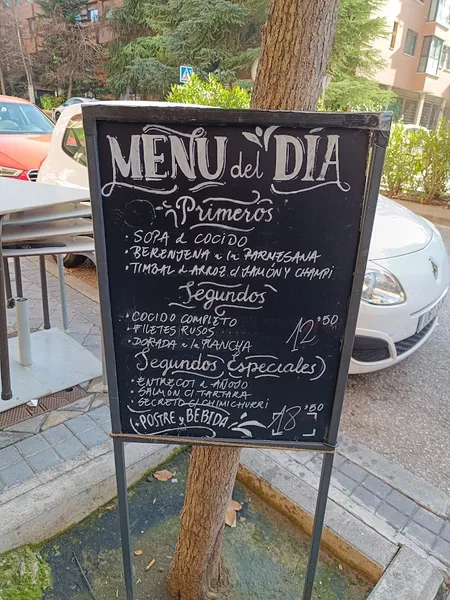 MENU del DÍA
Primeros
· SOPA d COCIDO
· BERENJENA a la PARMESANA
· TIMBAL d ARROZ c/ JAMÓN Y CHAMPI
Segundos
· COCIDO COMPLETO
· FILETES RUSOS
· DORADA a la PLANCHA
12'50
Segundos Especiales
· ENTRECOT d AÑOJO
· SALMÓN C/ TARTARA
· SECRETO C/ CHIMICHURRI
· POSTRE y BEBIDA
18'50